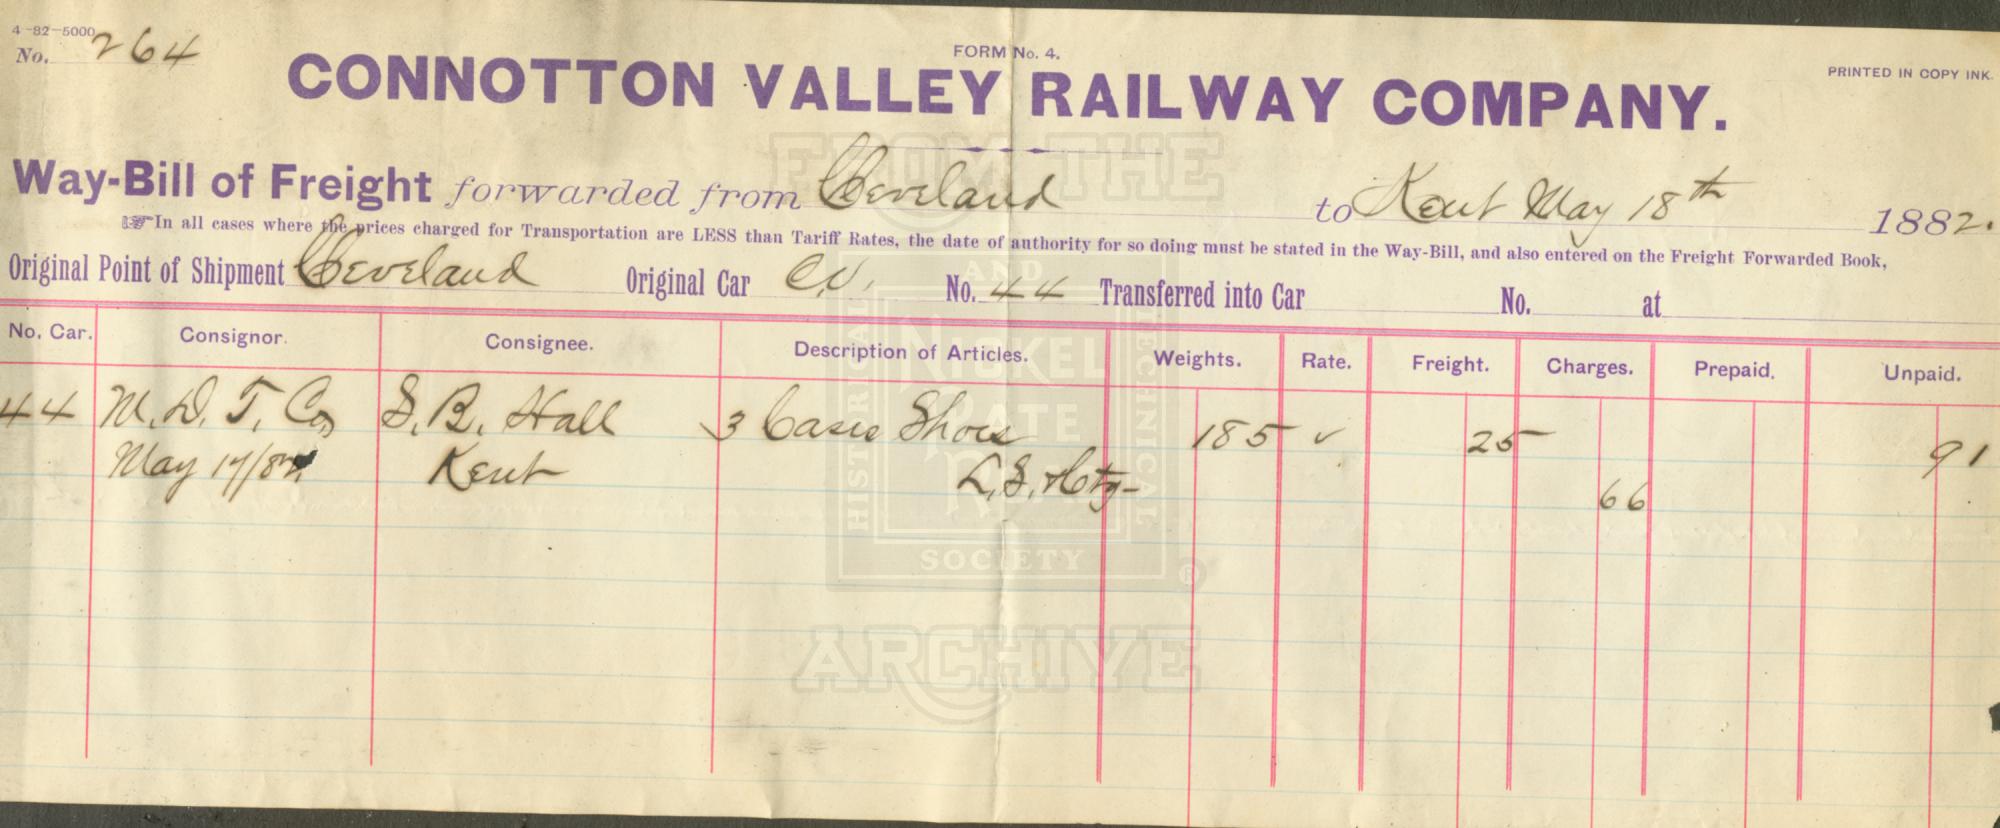 4-82-5000
No. 264
FORM No. 4.
PRINTED IN COPY INK.
CONNOTTON VALLEY RAILWAY COMPANY.
Way-Bill of Freight forwarded from Cleveland to Kent May 18th 1882.
☞In all cases where the prices charged for Transportation are LESS than Tariff Rates, the date of authority for so doing must be stated in the Way-Bill, and also entered on the Freight Forwarded Book,
Original Point of Shipment Cleveland Original Car C.V. No. 44 Transferred into Car No. at
No. Car. Consignor. Consignee. Description of Articles. Weights. Rate. Freight. Charges. Prepaid. Unpaid.
44 M.D.T. Co S.B. Hall 3 Cases Shoes 185 ✓ 25 91
May 17/82 Kent L.S. 66
FROM THE
HISTORICAL AND TECHNICAL
NICKEL
PLATE
RD
SOCIETY
®
ARCHIVE